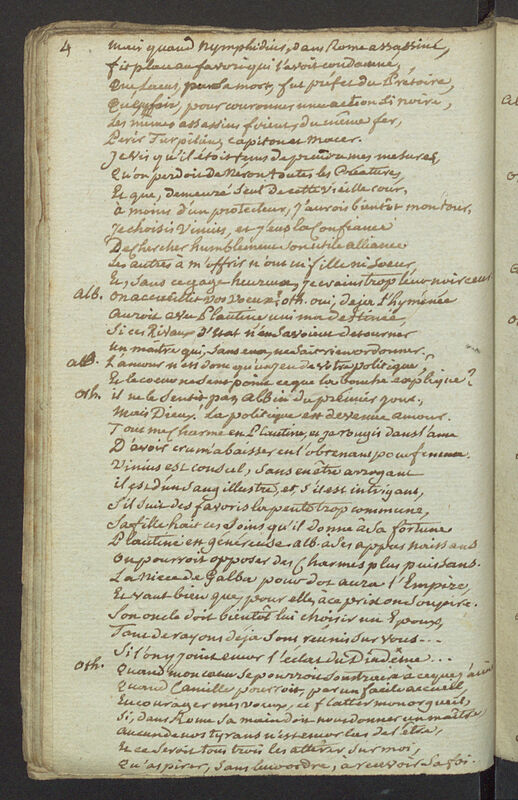 4 Mais quand Nymphidius, dans Rome assassiné,
fit place au favori qui l'avoit condamné,
Que Lacus, par sa mort, fut préfet du Prétoire,
Que pour couronner une action si noire,
Les mêmes assassins furent du même fer,
Périr Turpilian, Capiton et Macer.
Je vis qu'il étoit tems de prendre mes mesures,
Qu'on perdoit de Neron toutes les Créatures,
Et que, demeuré seul de cette vieille cour,
à moins d'un protecteur, j'aurois bientôt mon tour.
Je choisis Vinius, et j'eus la Confiance
De chercher humblement son utile alliance
Les autres à m'offrir n'ont ni fille ni soeur,
Et, sans ce gage heureux, je crains trop leur noirceur
alb. On accueillit vos voeux? oth. oui, deja l'hymenée
Auroit avec Plautine uni ma destinée
Si ces Rivaux d'Etat n'en savoient detourner
un maître qui, sans eux, ne sait rien ordonner.
alb. L'amour n'est donc qu'un jeu de votre politique
Et le coeur ne sent point ce que la bouche explique?
oth. il ne le sentit pas Albin du premier jour;
Mais Dieux. La politique est devenue amour.
Tout me charme en Plautine, et je rougis dans l'ame
D'avoir cru m'abaisser en l'obtenant pour femme.
Vinius est consul, sans en être arrogant
il est d'un sang illustre, et, s'il est intrigant,
s'il suit des favoris la pente trop commune,
Sa fille hait ces soins qu'il donne à sa fortune
Plautine est généreuse alb. à ses appas naissans
On pourroit opposer des charmes plus puissans.
La Niece de Galba pour dot aura l'Empire,
Et vaut bien que, pour elle, à ce prix on soupire.
Son oncle doit bientôt lui choisir un Epoux,
Tant de rayons deja sont reunis sur vous...
S'il on y joint encor l'éclat du Diadême...
oth. Quand mon coeur se pourroit soustraire à ce que j'aime
Quand Camille pourroit, par un facile accueil,
Encourager mes voeux, et flatter mon orgueil,
Si, dans Rome sa main doit nous donner un maître,
Aucun de nos tyrans n'est encor las de l'être,
Et ce seroit tous trois les attirer sur moi,
Qu'aspirer, sans leur ordre, à recevoir sa foi.